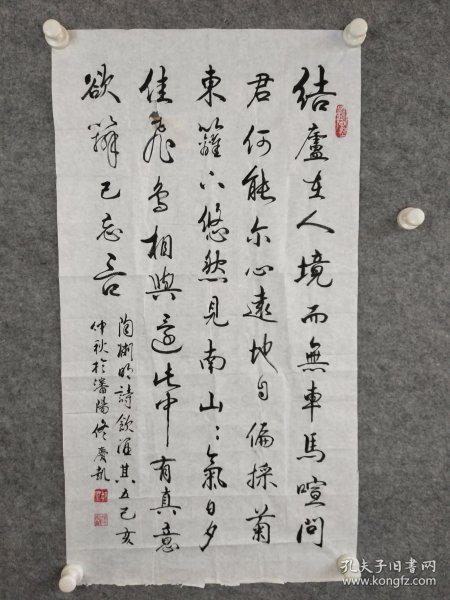 結廬在人境而無車馬喧問
君何能尔心遠地自偏採菊
東籬下悠然見南山〻氣日夕
佳飛鳥相與還此中有真意
欲辯已忘言
陶淵明詩飲酒其五己亥
仲秋於瀋陽
孔夫子旧书网
www.kongfz.com